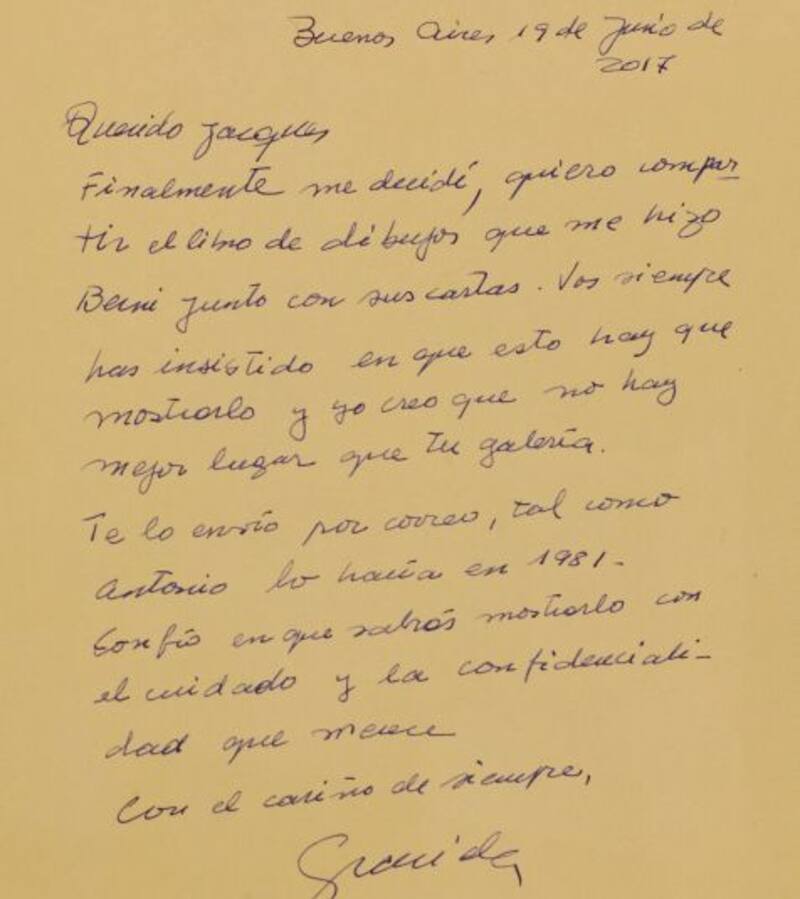 Buenos Aires 19 de Junio de
2017
Querido Jacques
Finalmente me decidí, quiero compar
tir el libro de dibujos que me hizo
Berni junto con sus cartas. Vos siempre
has insistido en que esto hay que
mostrarlo y yo creo que no hay
mejor lugar que tu galería.
Te lo envío por correo, tal como
Antonio lo hacía en 1981-
Confío en que sabrás mostrarlo con
el cuidado y la confidenciali-
dad que merece
Con el cariño de siempre,